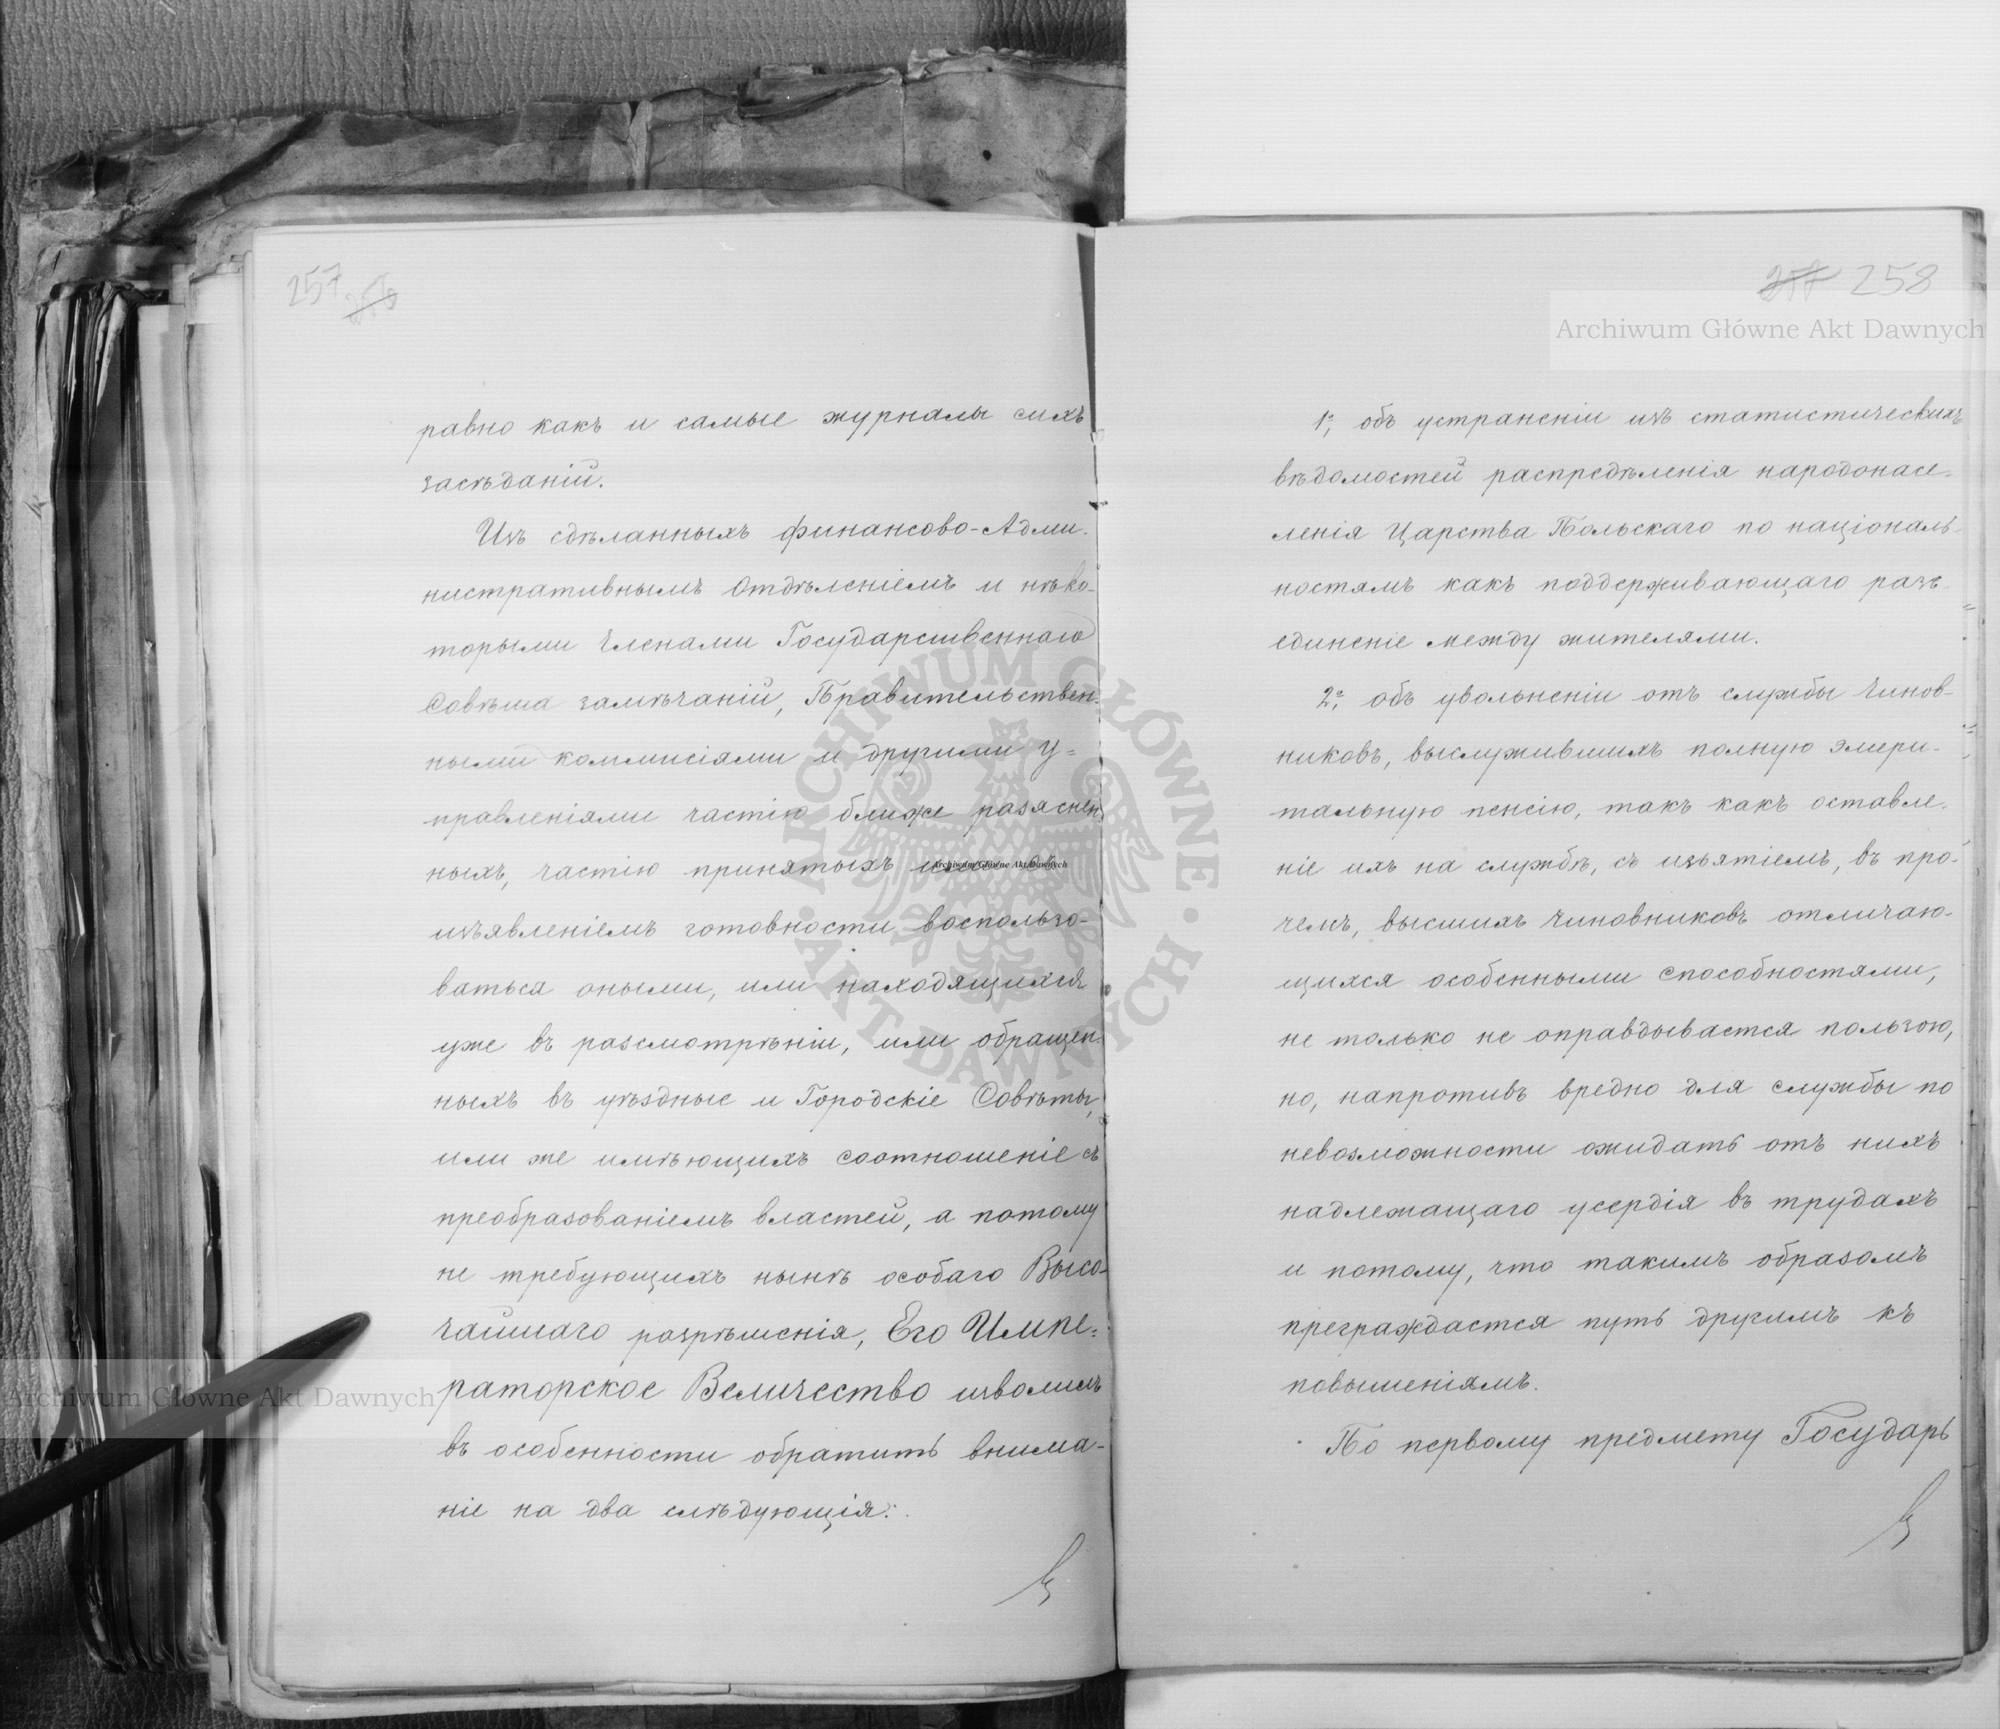 257
равно какъ и самые журналы сихъ
засѣданій.
Изъ сдѣланныхъ финансово-Адми-
нистративнымъ Отдѣленіемъ и нѣко-
торыми Членами Государственнаго
Совѣта замѣчаній, Правительствен-
ными коммисіями и другими у=
правленіями частію ближе разяснен-
ныхъ, частію принятыхъ
изъявленіемъ готовности воспользо-
ваться оными, или находящихся
уже въ разсмотрѣніи, или обращен-
ныхъ въ уѣздные и Городскіе Совѣты,
или же имѣющихъ соотношеніе съ
преобразованіемъ властей, а потому
не требующихъ нынѣ особаго Высо-
чайшаго разрѣшенія, Его Импе=
раторское Величество изволилъ
въ особенности обратить внима-
ніе на два слѣдующія:
258
1е, объ устраненіи изъ статистическихъ
вѣдомостей распредѣленія народонасе-
ленія Царства Польскаго по національ-
ностямъ какъ поддерживающаго разъ-
единеніе между жителями.
2е, объ увольненіи отъ службы чинов-
никовъ, выслужившихъ полную эмери-
тальную пенсію, такъ какъ оставле-
ніе ихъ на службѣ, съ изъятіемъ, въ про-
чемъ, высшихъ чиновниковъ отличаю-
щихся особенными способностями,
не только не оправдывается пользою,
но, напротивъ вредно для службы по
невозможности ожидать отъ нихъ
надлежащаго усердія въ трудахъ
и потому, что такимъ образомъ
преграждается путь другимъ къ
повышеніямъ.
По первому предмету Государь
Archiwum Główne Akt Dawnych
Archiwum Główne Akt Dawnych
Archiwum Główne Akt Dawnych
ARCHIWUM GŁÓWNE · AKT DAWNYCH ·